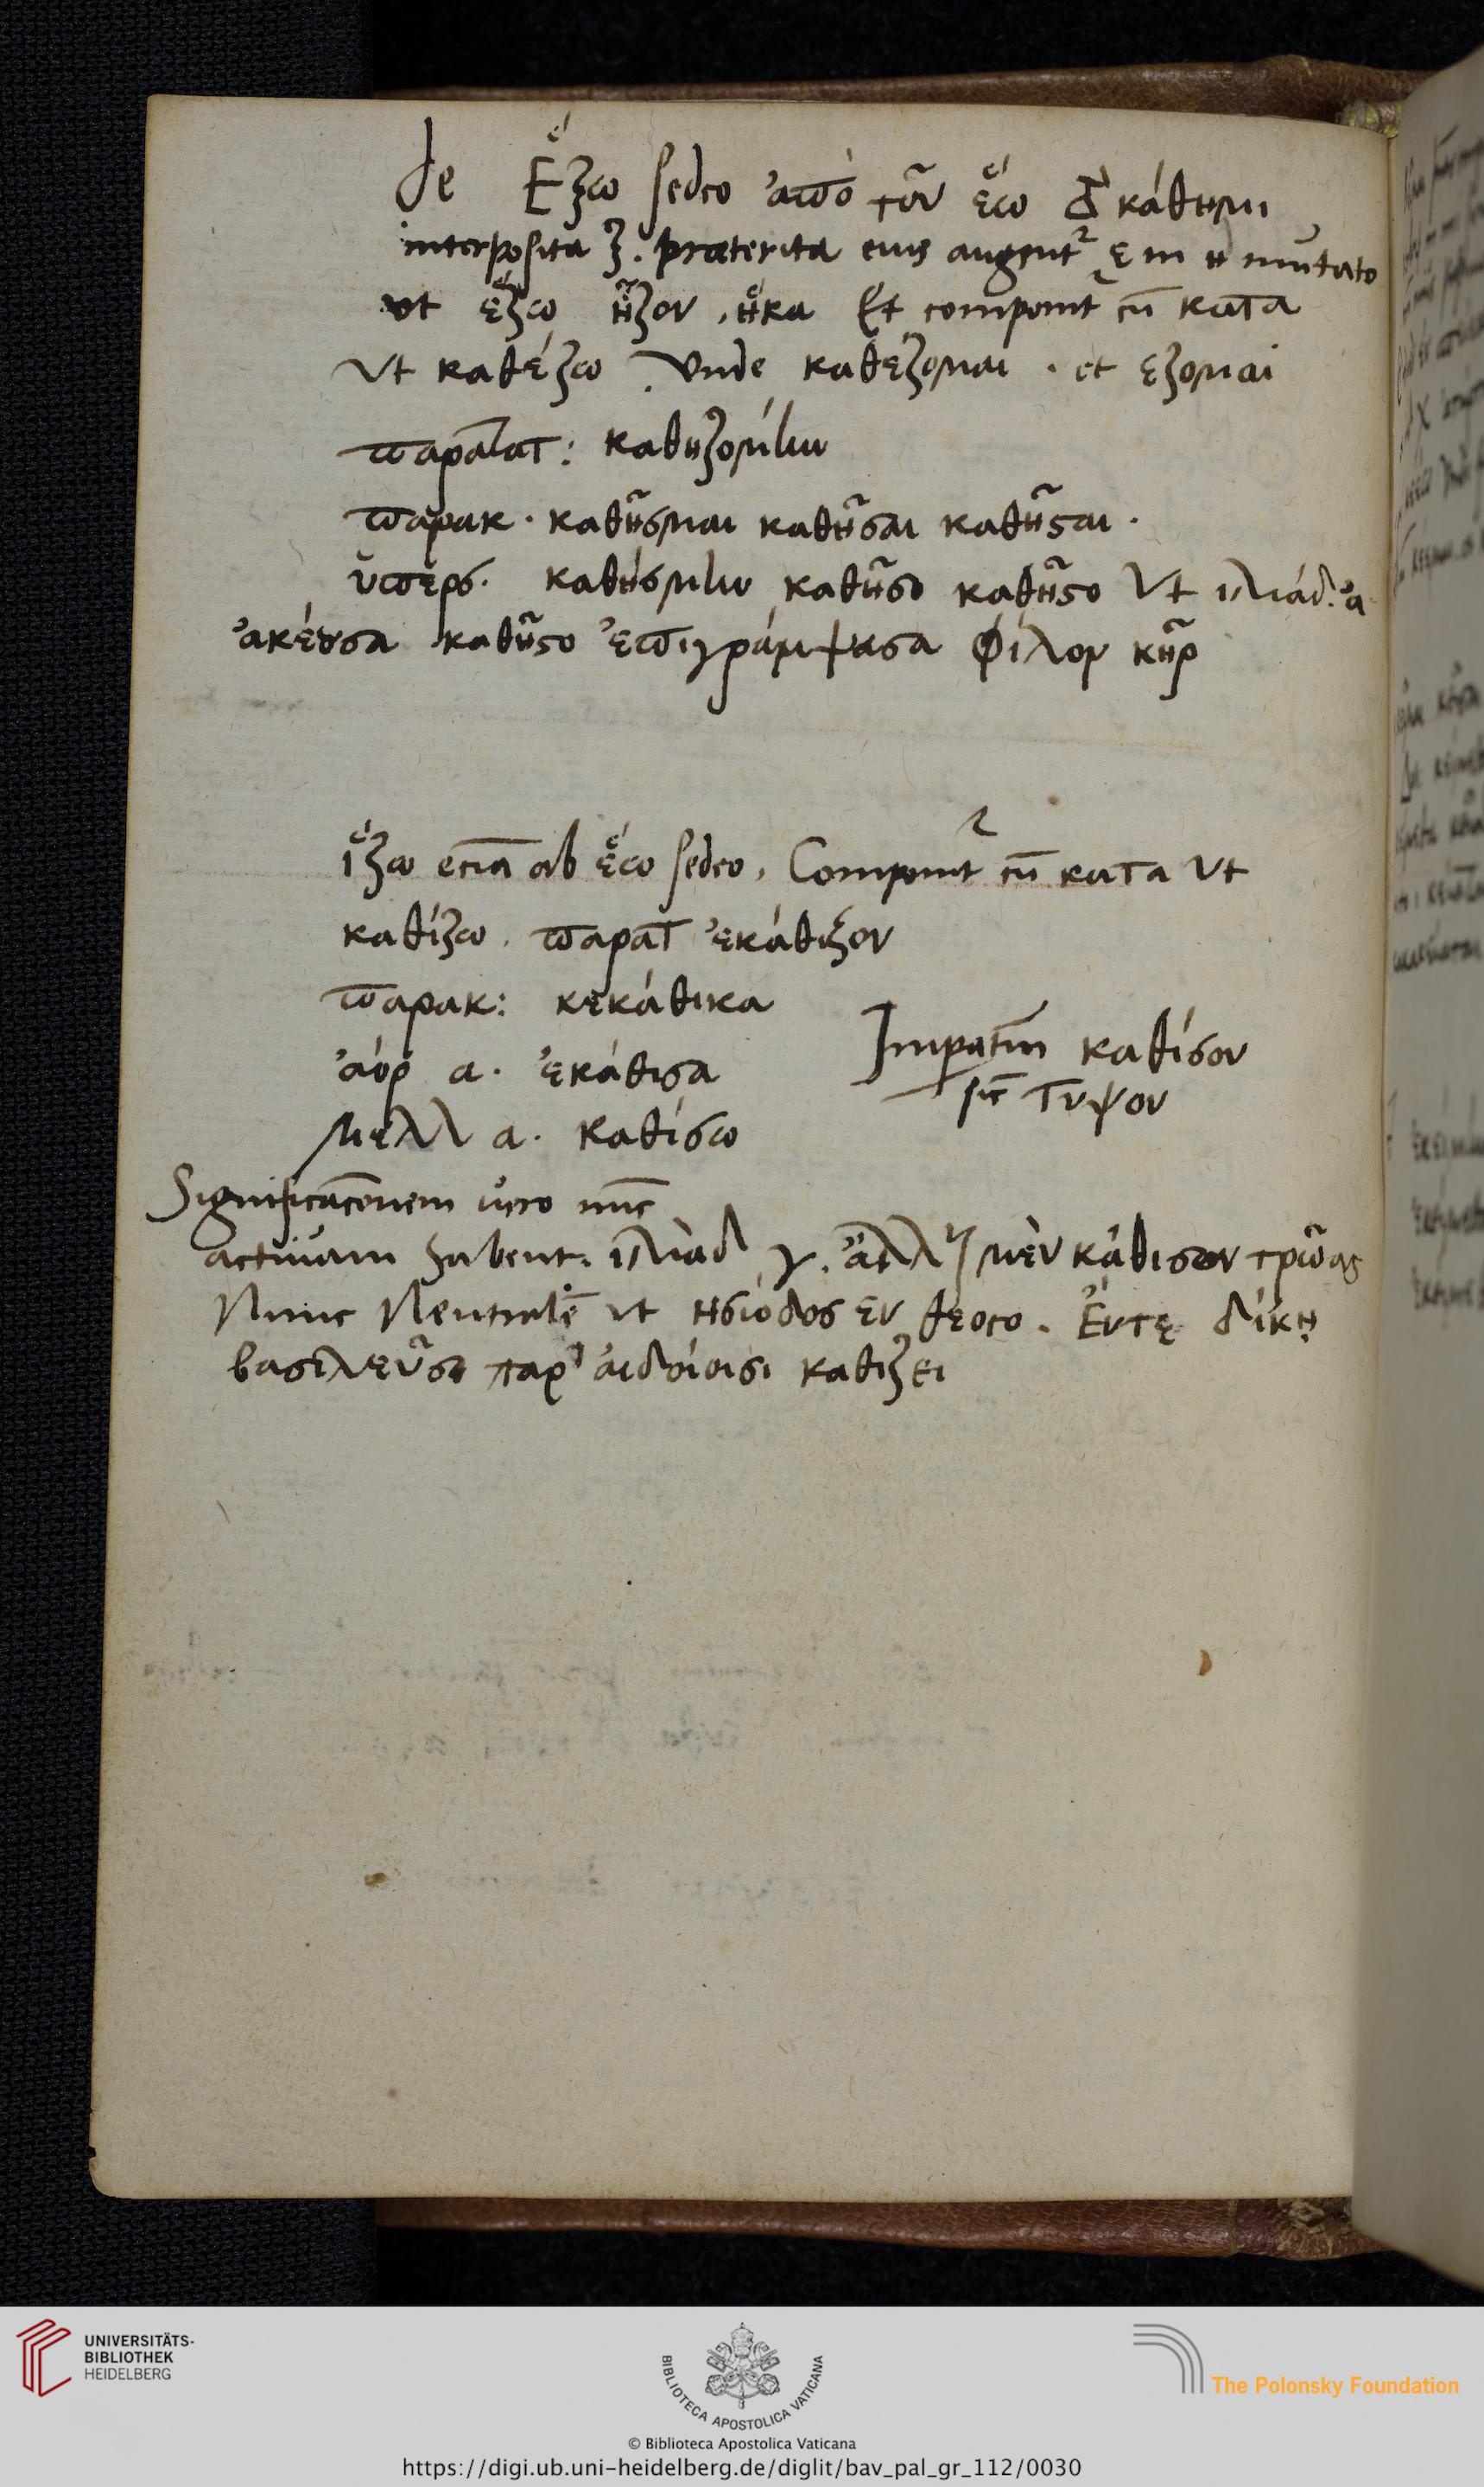 de Ἕζω sedeo ἀπὸ τοῦ ἕω κάθημι
interposita ζ. præterita eius augent~ ε in η mutato
ut ἕζω ἧζον, ἧκα Et componit~ cū κατα
Ut καθέζω. Unde καθεζομαι . et εζομαι
παρατατ: καθηζομην
παρακ. καθῆσμαι καθῆσαι καθῆσται.
ὑπερσ. καθήσμην καθῆσο καθῆστο Ut ιλιάδ. α
ἀκέουσα καθῆστο ἐπιγράμψασα φίλον κῆρ
ἵζω eciā ab ἕω sedeo, Componit~ cū κατα Ut
καθίζω. παρατ ἐκάθιζον
παρακ: κεκάθικα
ἀόρ α. ἐκάθισα
Imperatiū καθίσον
sic τυψον
μελλ α. καθίσω
Significacōnem vero nūc
activam habent. ιλιαδ γ. ἄλλους μὲν κάθισον τρῶας
Nunc Neutralē ut ησιόδος εν θεογο. Ἔντε δίκη
βασιλεῦσι παρ' αἰδοίοισι καθιζει
UNIVERSITÄTS-
BIBLIOTHEK
HEIDELBERG
BIBLIOTECA APOSTOLICA VATICANA
The Polonsky Foundation
© Biblioteca Apostolica Vaticana
https://digi.ub.uni-heidelberg.de/diglit/bav_pal_gr_112/0030